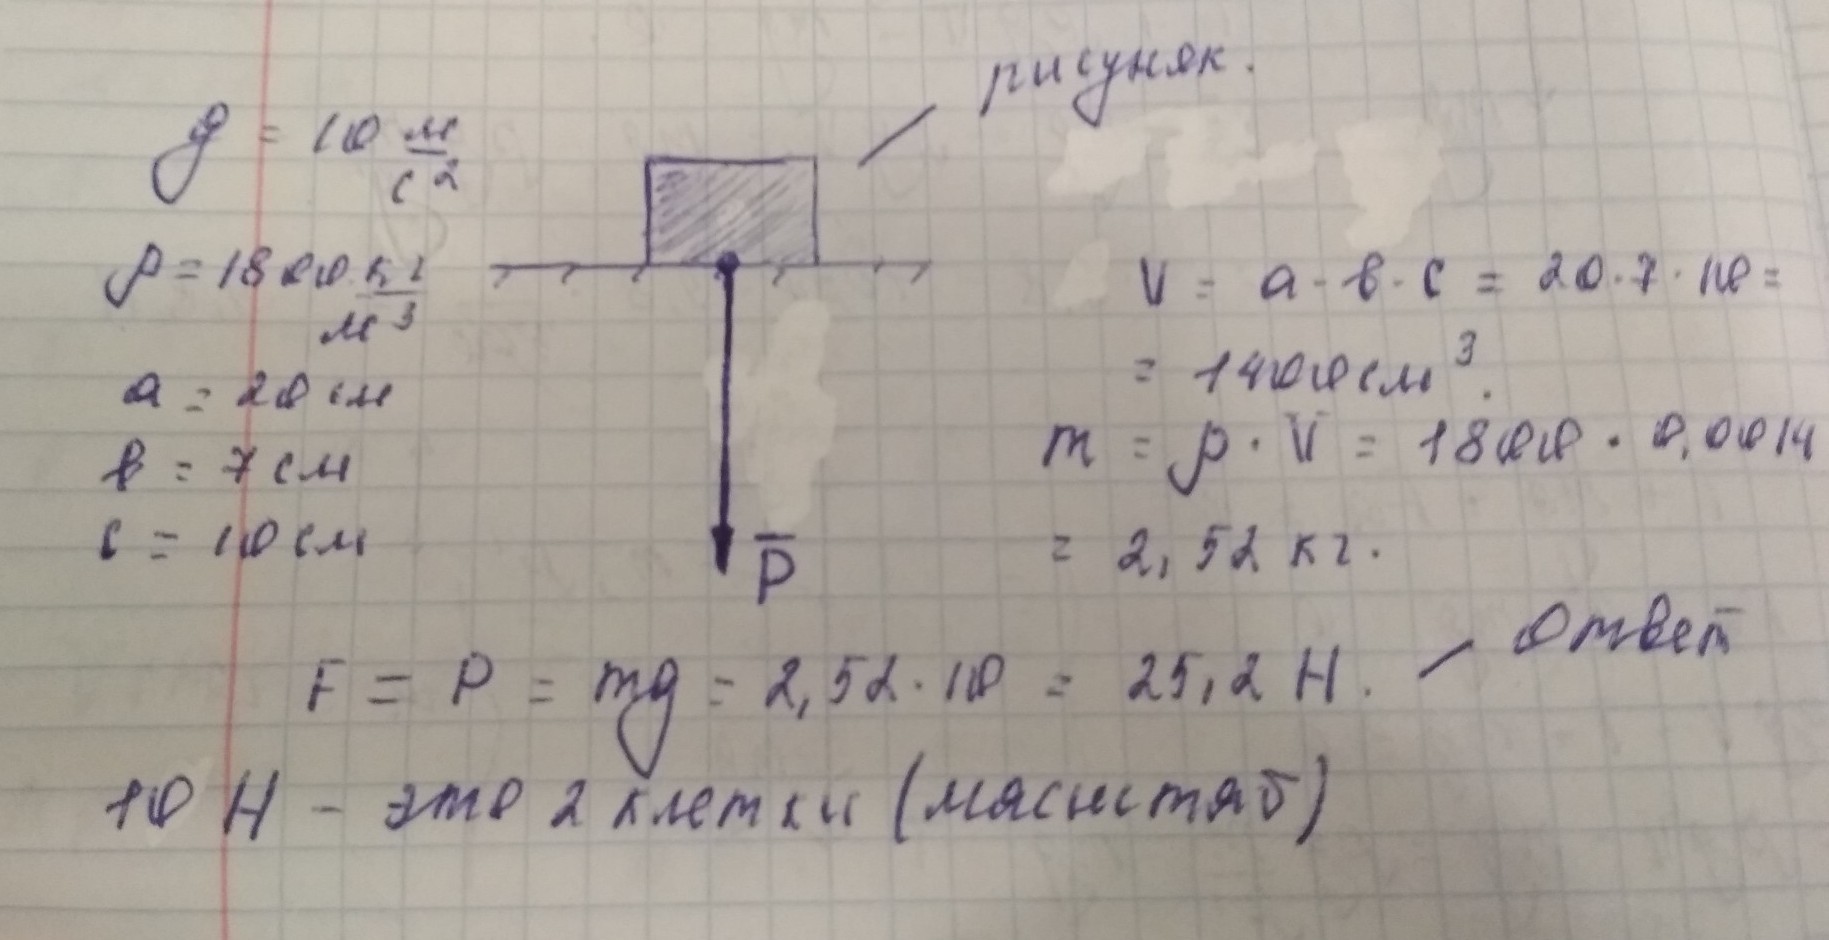 рисунок.
g = 10 м/с²
ρ = 1800 кг/м³
a = 20 см
в = 7 см
с = 10 см
P̅
V = a · в · с = 20 · 7 · 10 =
= 1400 см³.
m = ρ · V = 1800 · 0,0014
= 2,52 кг.
F = P = mg = 2,52 · 10 = 25,2 Н. — Ответ
10 Н – это 2 клетки (масштаб)